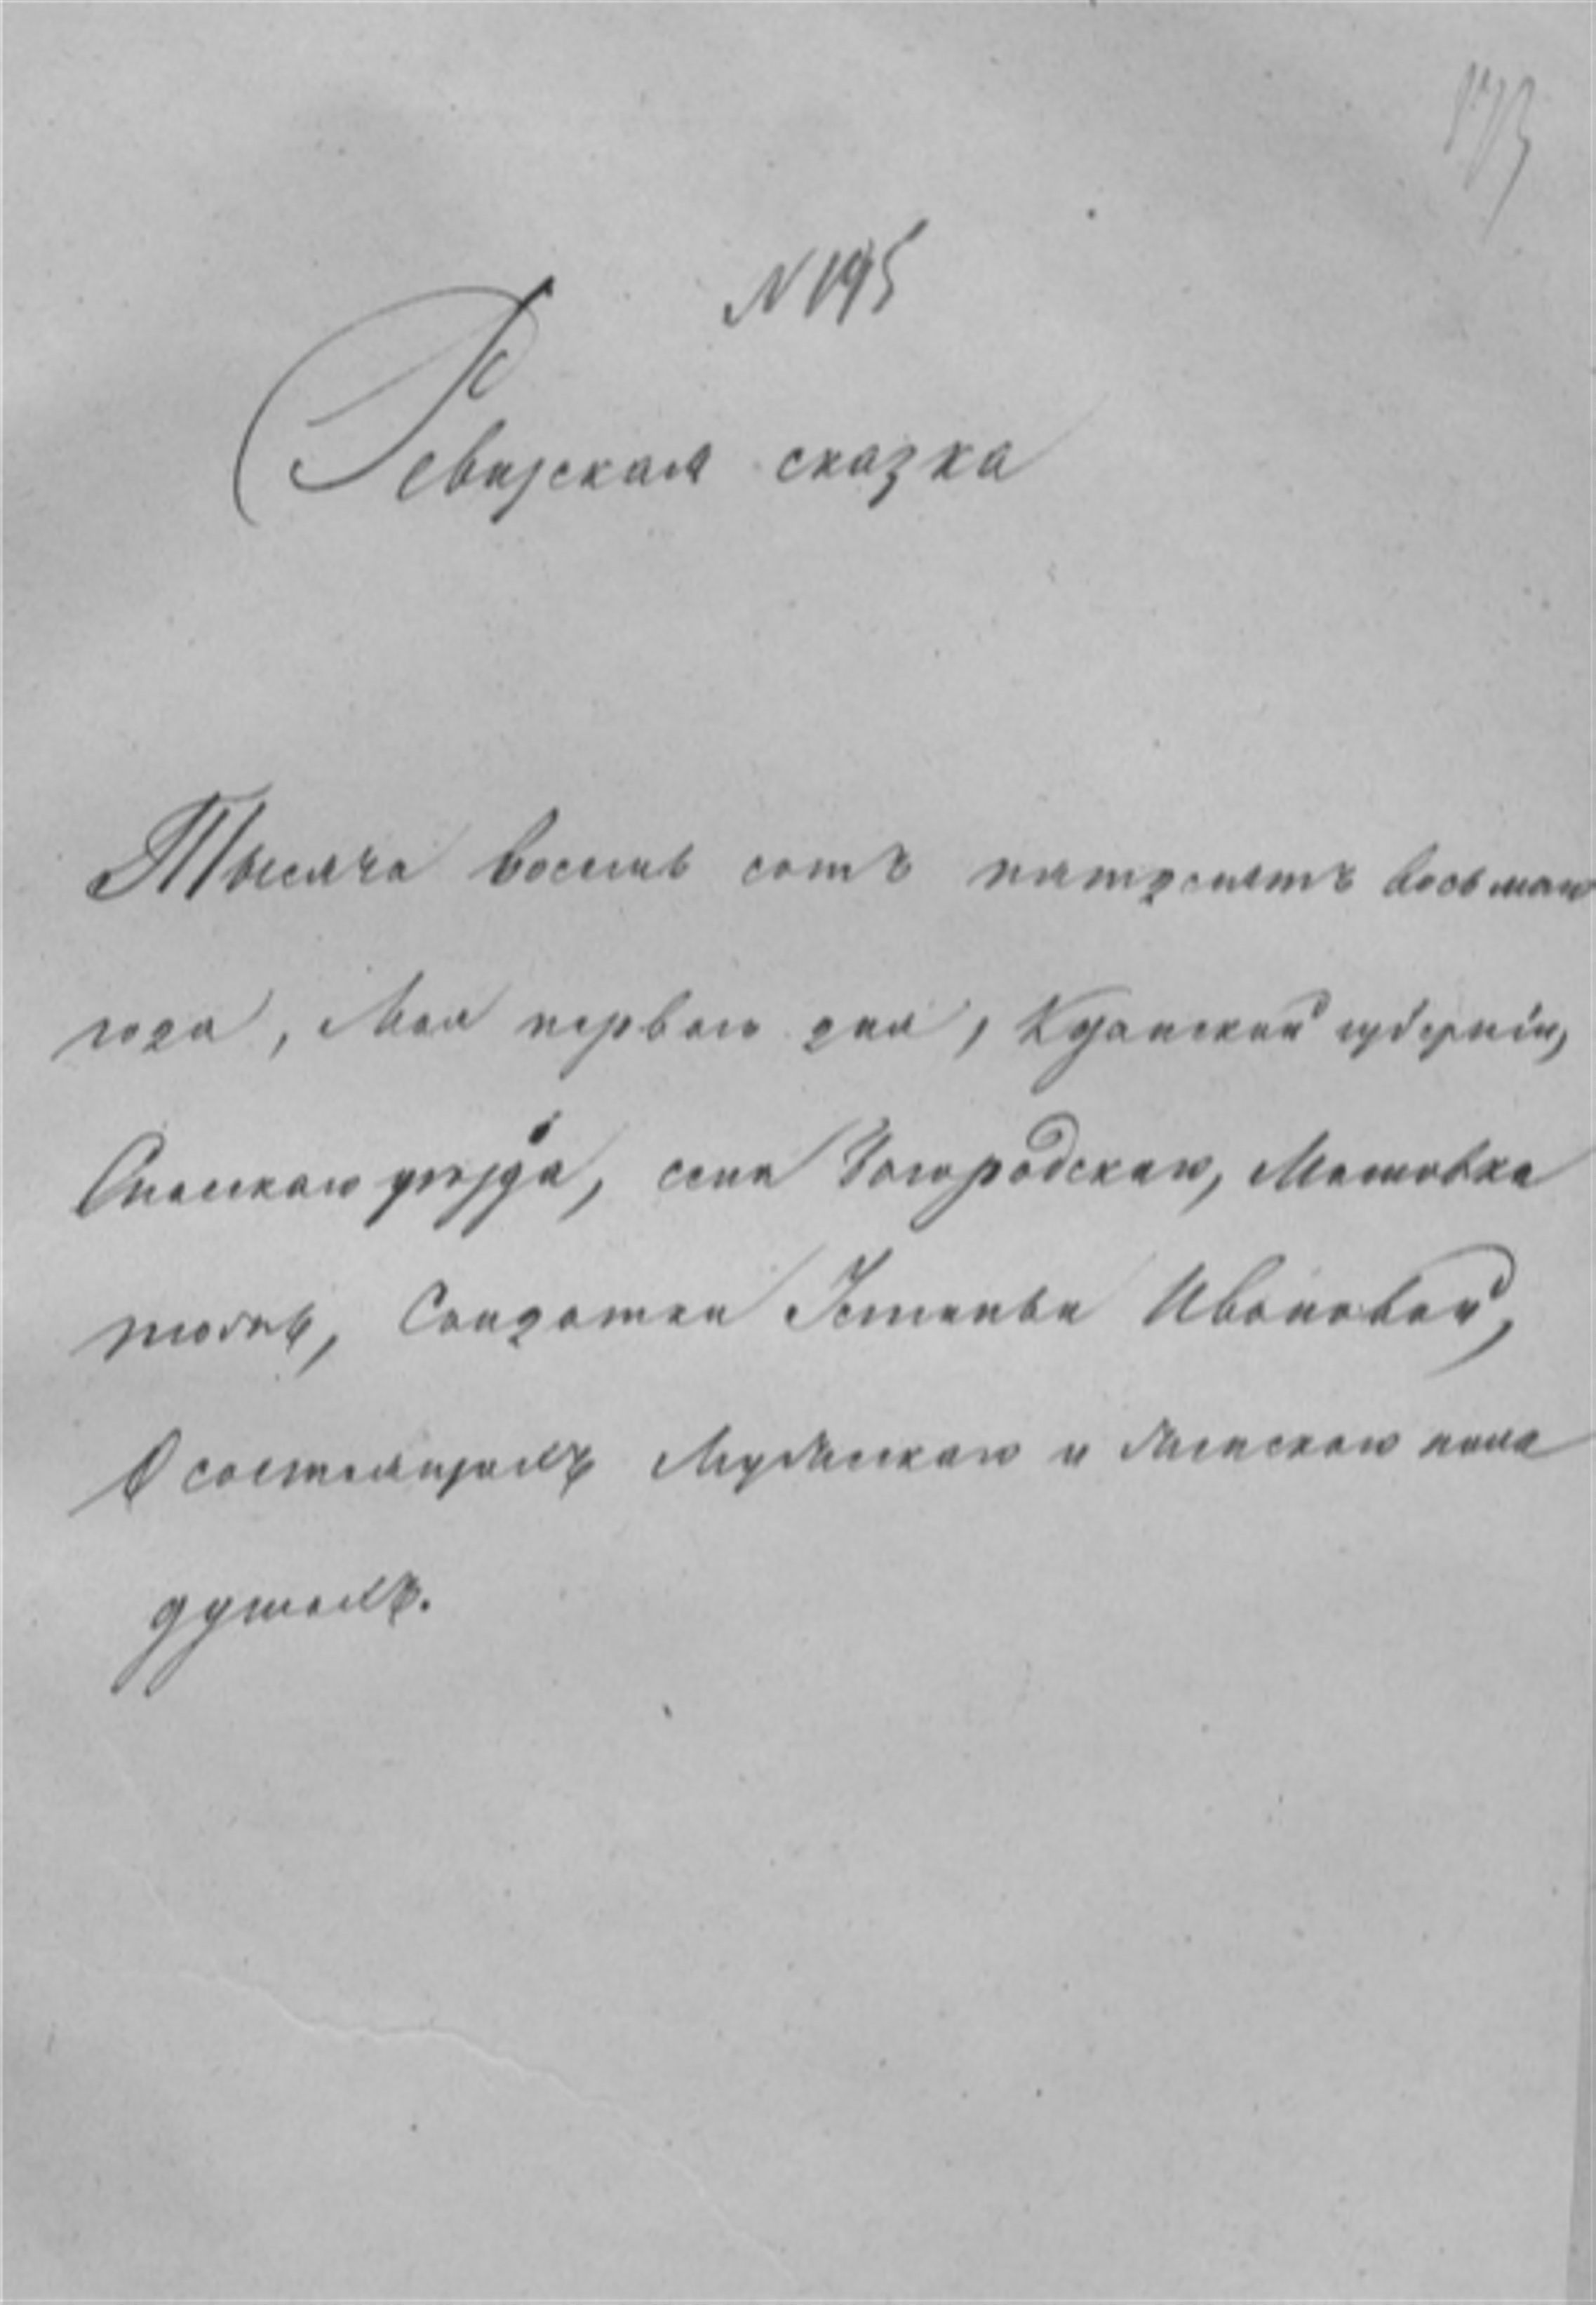 173
N 195
Ревизская сказка
Тысяча восемь сотъ пятдесятъ восьмаго
года, Мая перваго дня, Казанской губерніи,
Спасскаго уѣзда, села Богородскаго, Матовка
тожъ, Солдатки Устиньи Ивановой,
О состоящихъ Мужескаго и женскаго пола
душахъ.